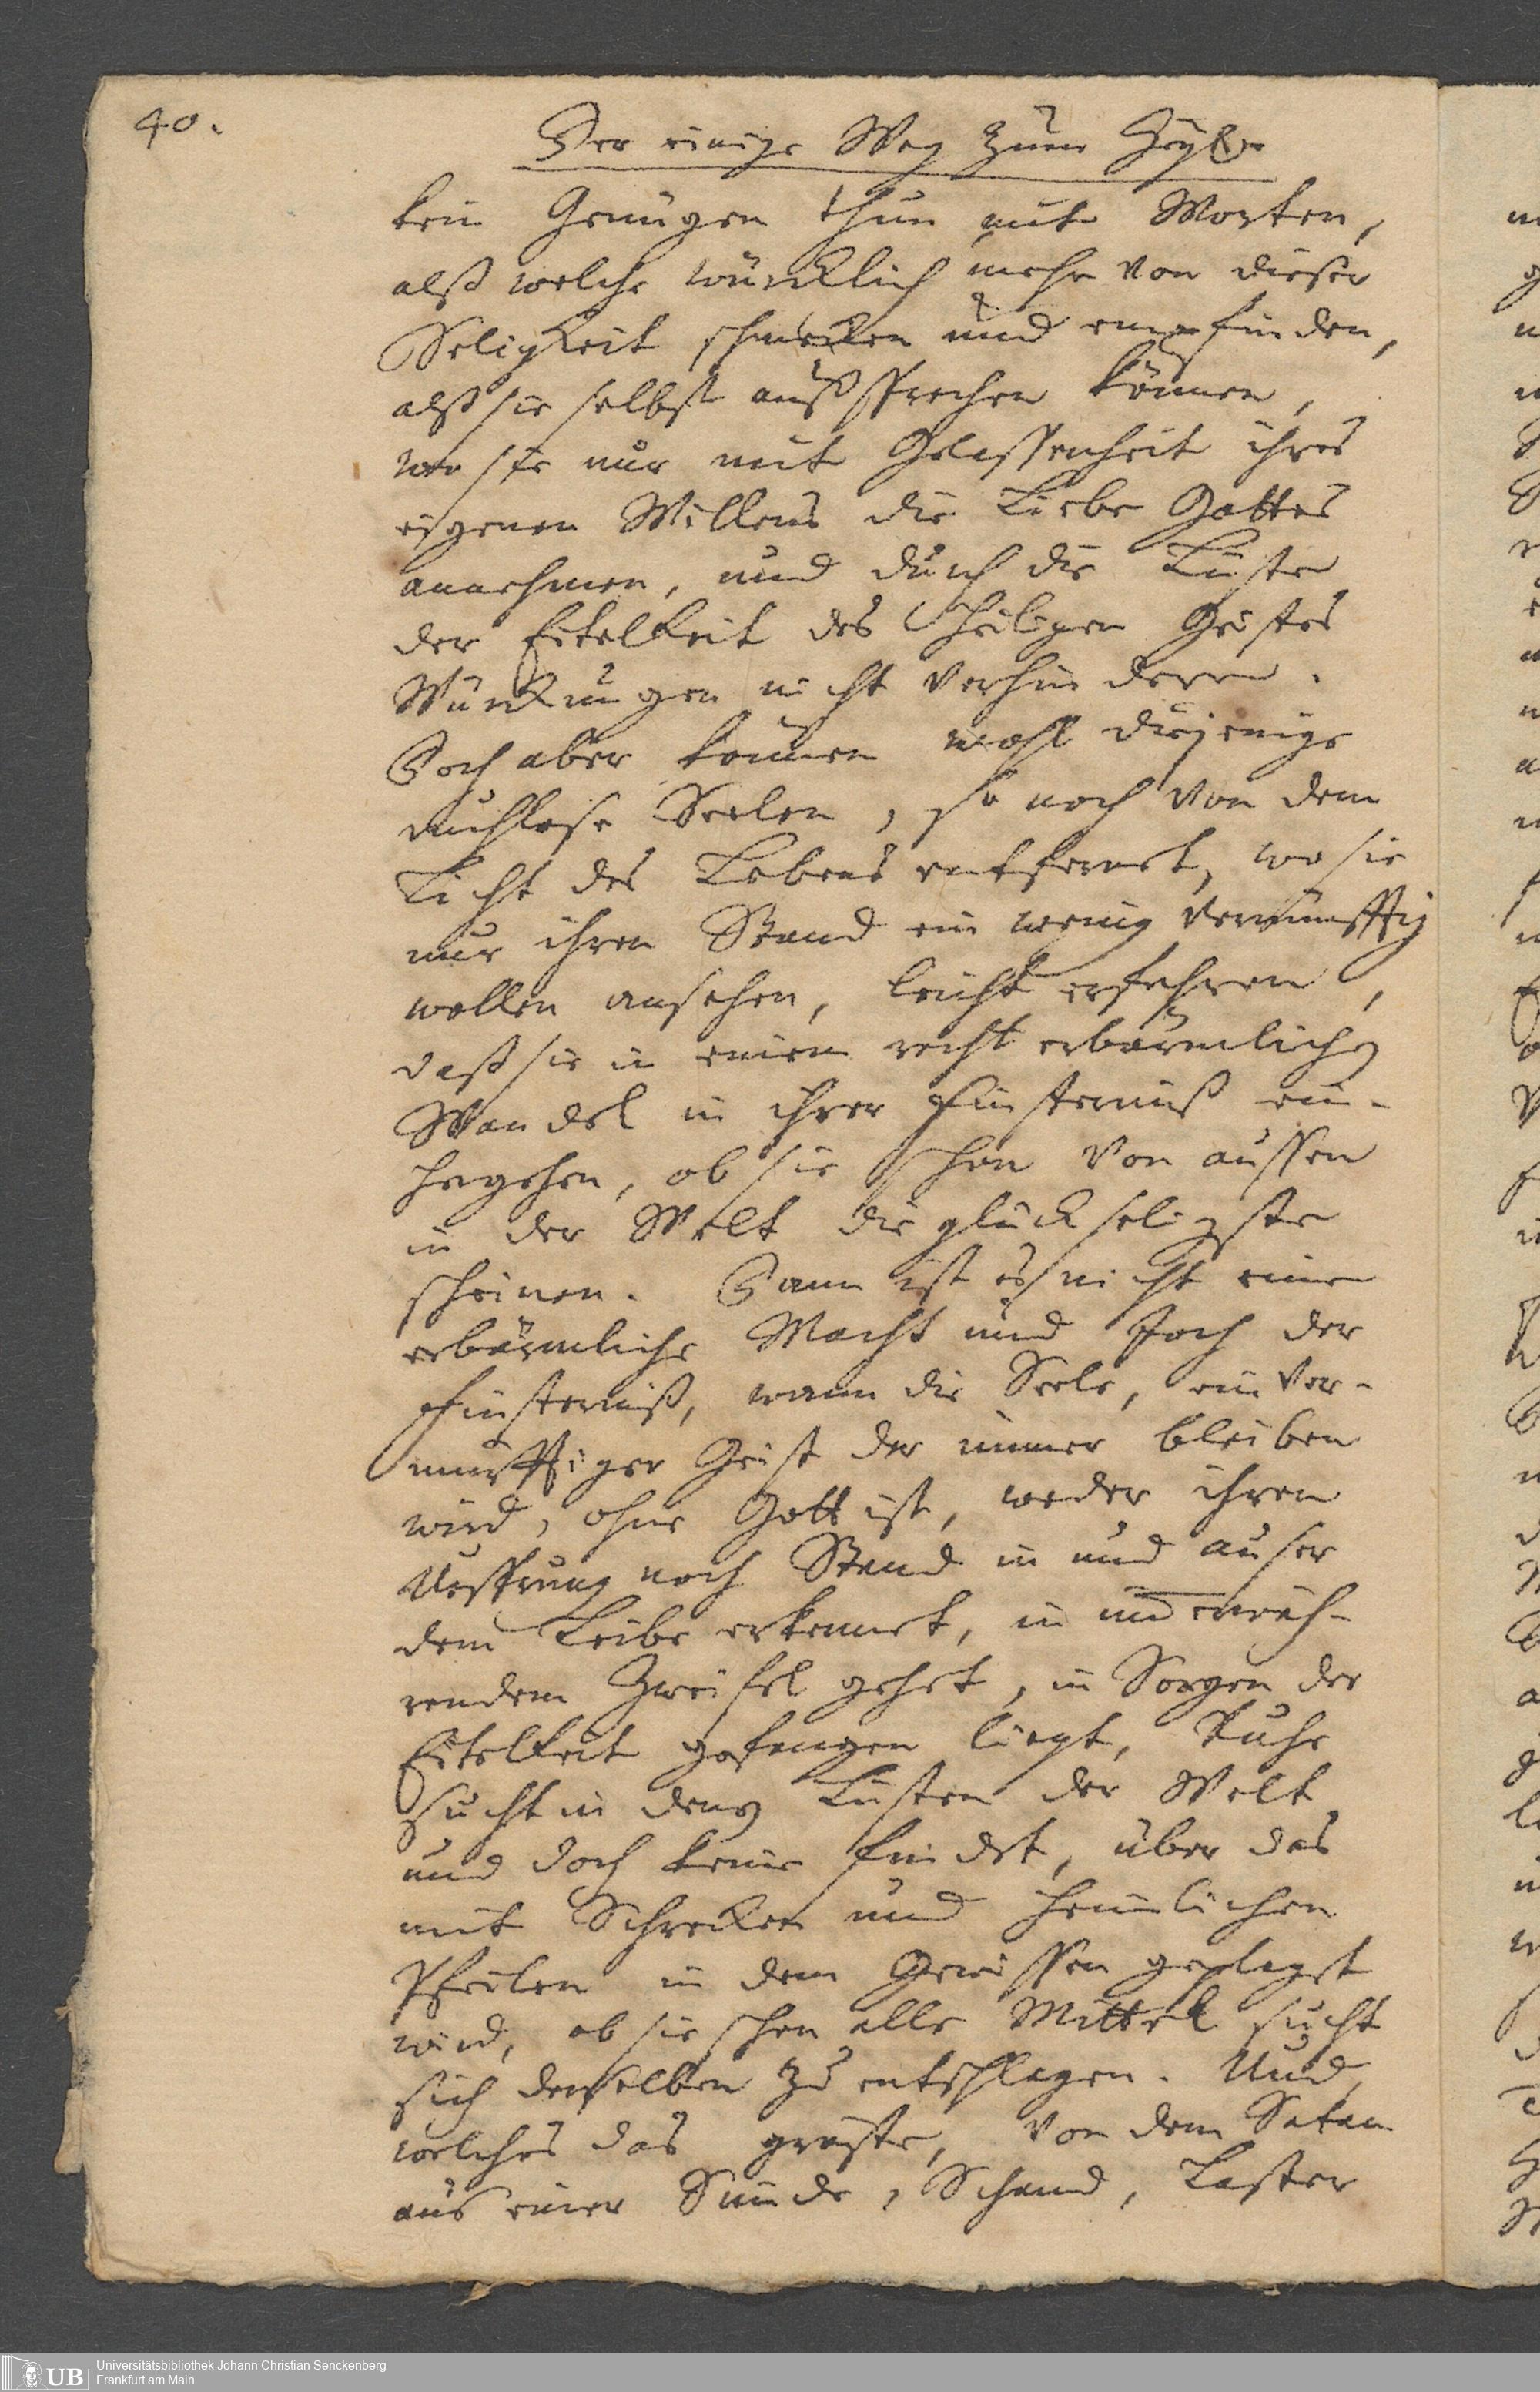 40.
Der einige Weg zum Heyl
kein Genügen thun mit Worten,
alß welche würcklich mehr von dieser
Seligkeit schmecken und empfinden,
alß sie selbst außsprechen können,
wo sie nur mit Gelassenheit ihres
eigenen Willens die Liebe Gottes
annehmen, und durch die Lüste
der Eitelkeit des Heiligen Geistes
Würckungen nicht verhindern.
Doch aber können wohl diejenige
ruchlose Seelen, so noch von dem
Licht des Lebens entfernet, wo sie
nur ihren Stand ein wenig vernünfftig
wollen ansehen, leicht erfahren,
daß sie in einem recht erbärmlichen
Wandel in ihrer Finsterniß ein-
hergehen, ob sie schon von aussen
in der Welt die glückseligste
scheinen. Dann ist es nicht eine
erbärmliche Macht und Joch der
Finsterniß, wann die Seele, ein ver-
nünfftiger Geist der immer bleiben
wird, ohne Gott ist, weder ihren
Ursprung noch Stand in und auser
dem Leibe erkennet, in im̅erwäh-
rendem Zweifel gehet, in Sorgen der
Eitelkeit gefangen liegt, Ruhe
sucht in denen Lüsten der Welt
und doch keine findet, über das
mit Schrecken und heimlichen
Pfeilen in dem Gewissen geplaget
wird, ob sie schon alle Mittel sucht
sich derselben zu entschlagen. Und
welches das gröste, von dem Satan
aus einer Sünde, Schand, Laster
Universitätsbibliothek Johann Christian Senckenberg
Frankfurt am Main
UB